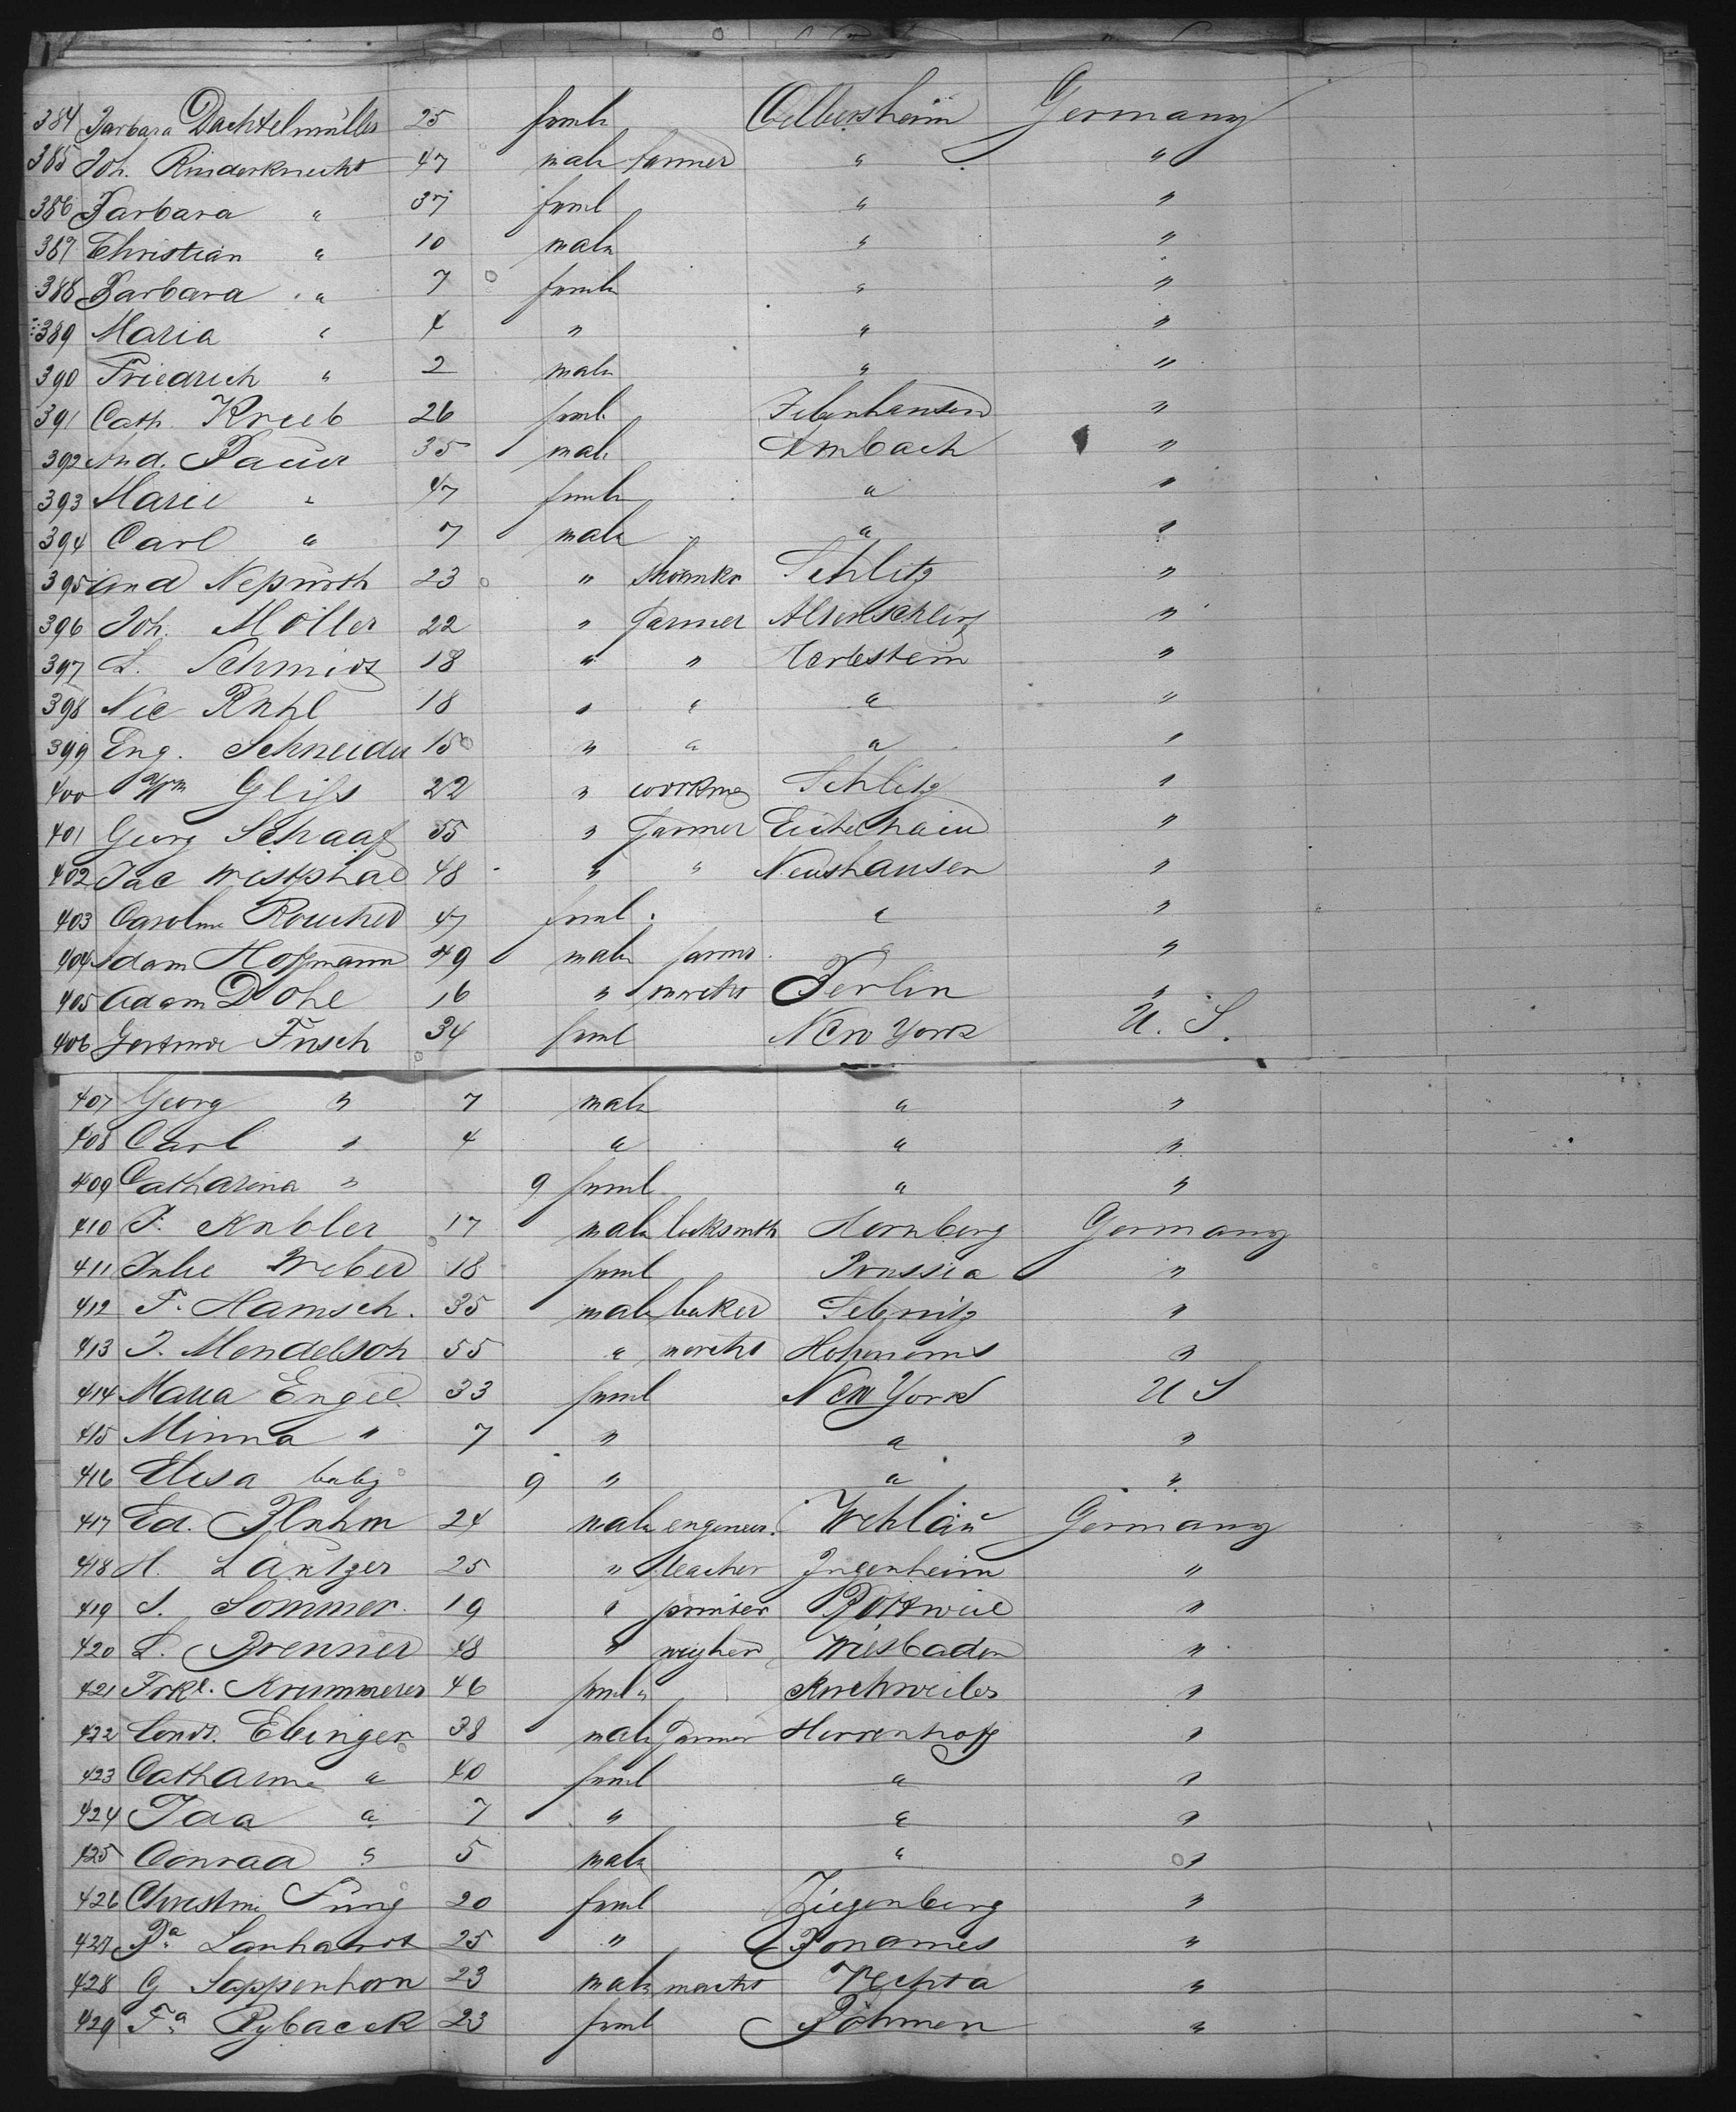 384 Barbara Dachtelmüller 25 femle Olbersheim Germany
385 Joh. Rinderknecht 47 male farmer " "
386 Barbara " 37 feml " "
387 Christian " 10 male " "
388 Barbara " 7 femle " "
389 Maria " 4 " " "
390 Friedrich " 2 male " "
391 Cath. Krieb 26 feml. Jebenhausen "
392 And. Bauer 35 male Ambach "
393 Marie " 47 femle " "
394 Carl " 7 male " "
395 And 23 " Schlitz "
396 Joh. Möller 22 " farmer Altenschlirf "
397 L. Schmidt 18 " " Herbstein "
398 Nic Ruhl 18 " " " "
399 Eng. Schneider 15 " " " "
400 Wm Gliss 22 " workmg Schlitz "
401 Georg Schaaf 55 " farmer Eichelhain "
402 Jac Westphal 48 " " Neushausen "
403 Caroline 47 feml. " "
404 Adam Hoffmann 49 male farmr "
405 Adam Dohl 16 " Berlin "
406 Gertrude Frisch 34 feml New York U. S.
407 Georg " 7 male " "
408 Carl " 4 " " "
409 Catharina " 9 feml " "
410 F. Knobler 17 male locksmith Hornberg Germany
411 Julie Weber 18 feml Prussia "
412 F. Hamsch. 35 male baker Sebnitz "
413 J. Mendelsoh 55 " Hohenems "
414 Maria Engel 33 feml New York U S
415 Minna " 7 " " "
416 Elisa baby 9 " " "
417 Ed. Bluhm 24 male engineer. Wehlau Germany
418 H. Läutzer 25 " teacher Ingenheim "
419 S. Sommer. 19 " printer Rottweil "
420 L. Brenner 48 " weigher Wiesbaden "
421 Frke. Krummerer 46 feml " Kirchweiler "
422 Conr. Ebinger 38 male farmer Herrenhoff "
423 Catharine " 40 feml " "
424 Ida " 7 " " "
425 Conrad " 5 male " "
426 Christine Füng 20 feml Ziegenberg "
427 Ba Lanhardt 25 " Bonames "
428 G Sappenhorn 23 male mercht Vechta "
429 Fa Rybaeck 23 feml Böhmen "